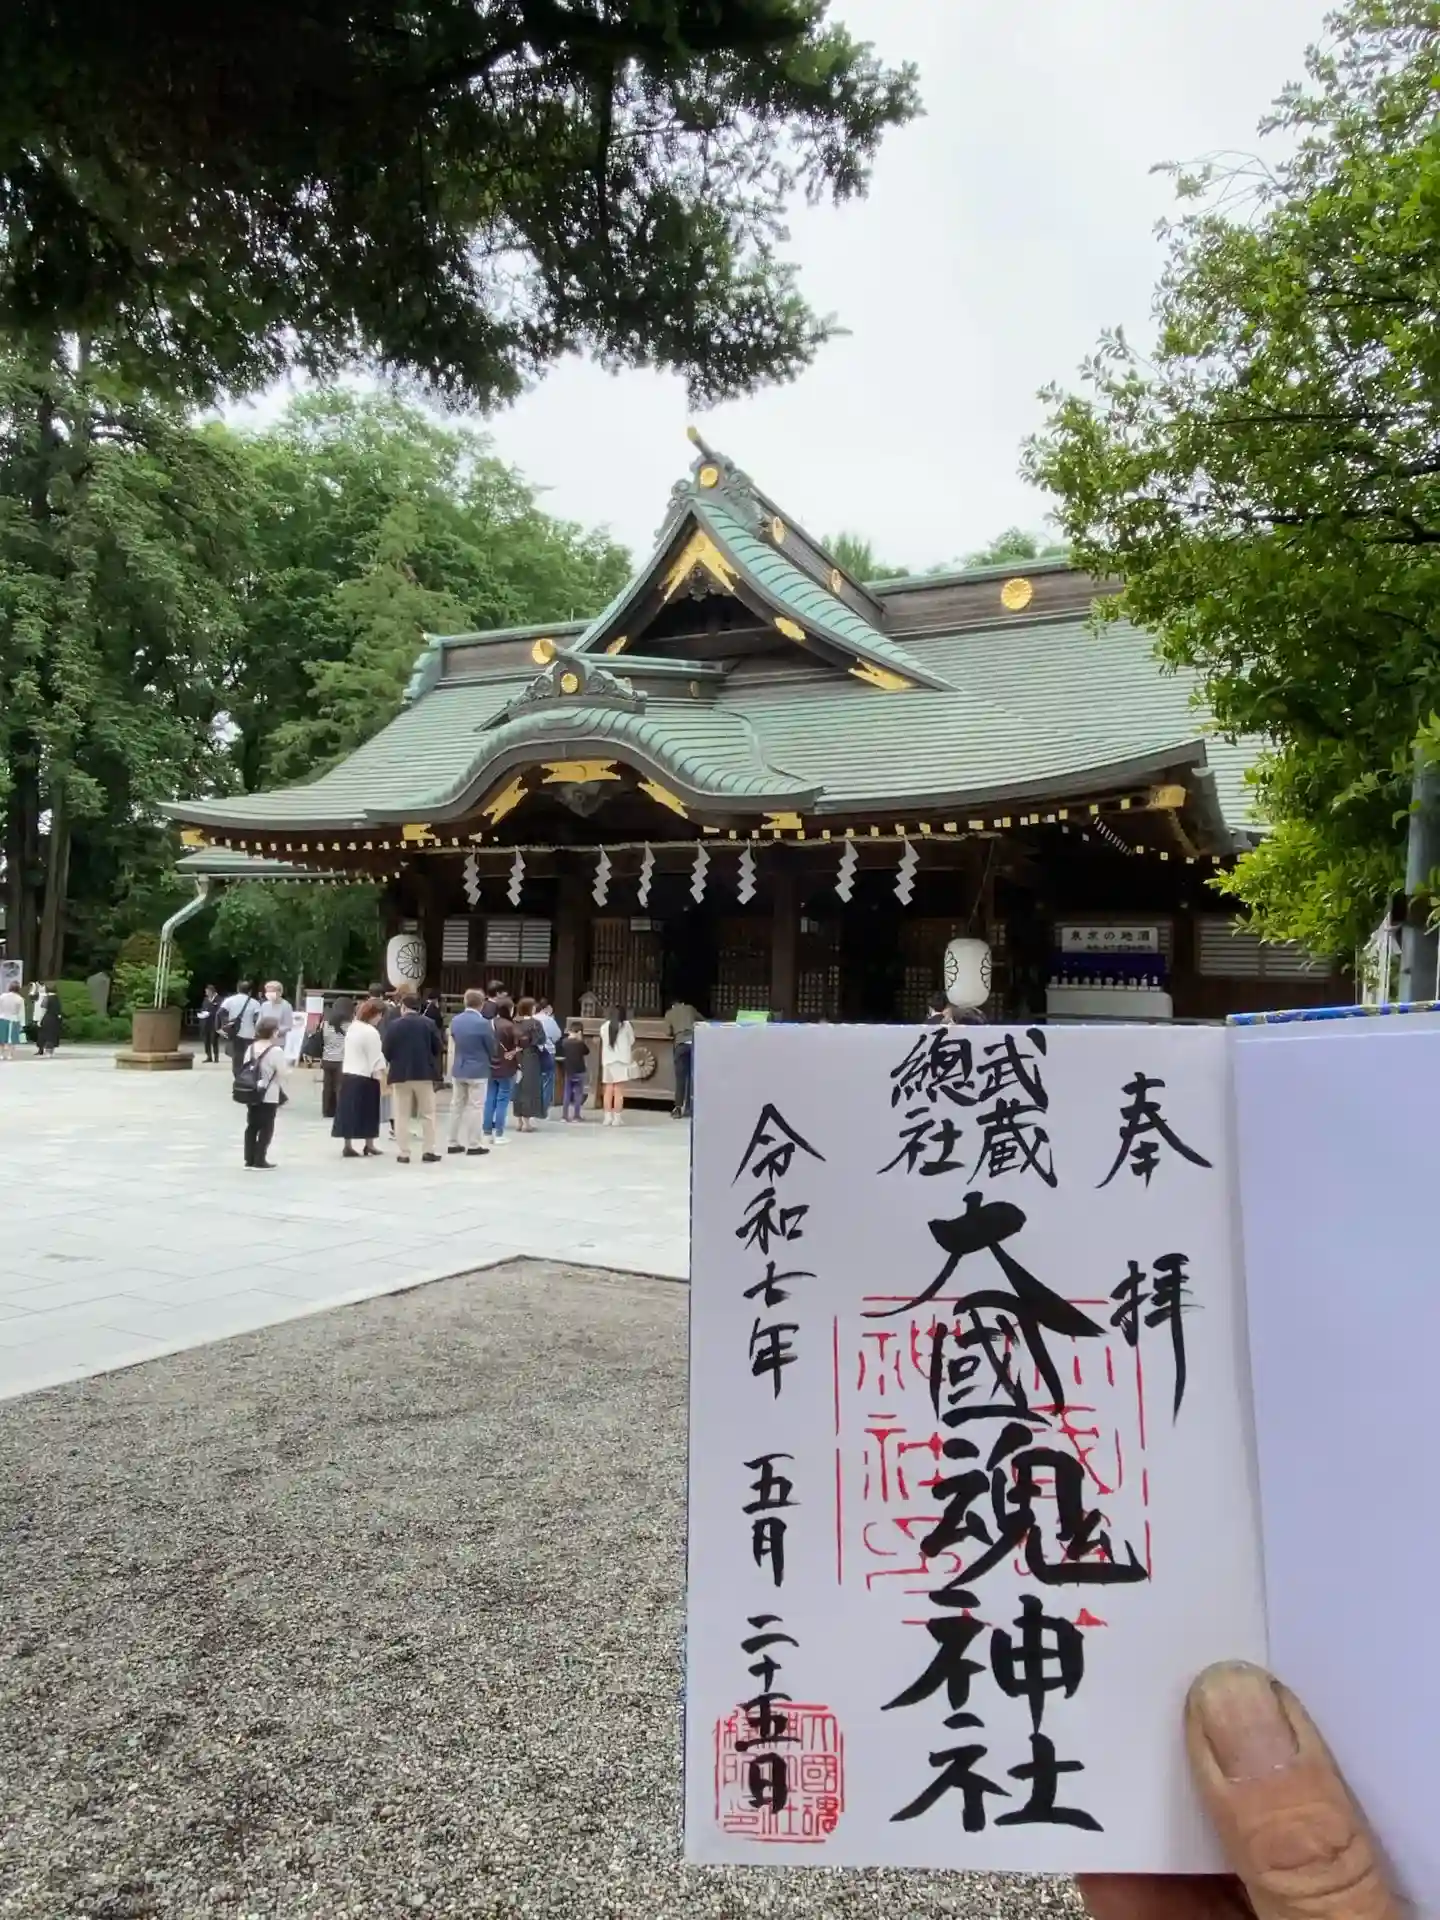 東京の地酒
奉拝
武蔵
總社
大國魂神社
令和七年 五月 二十五日